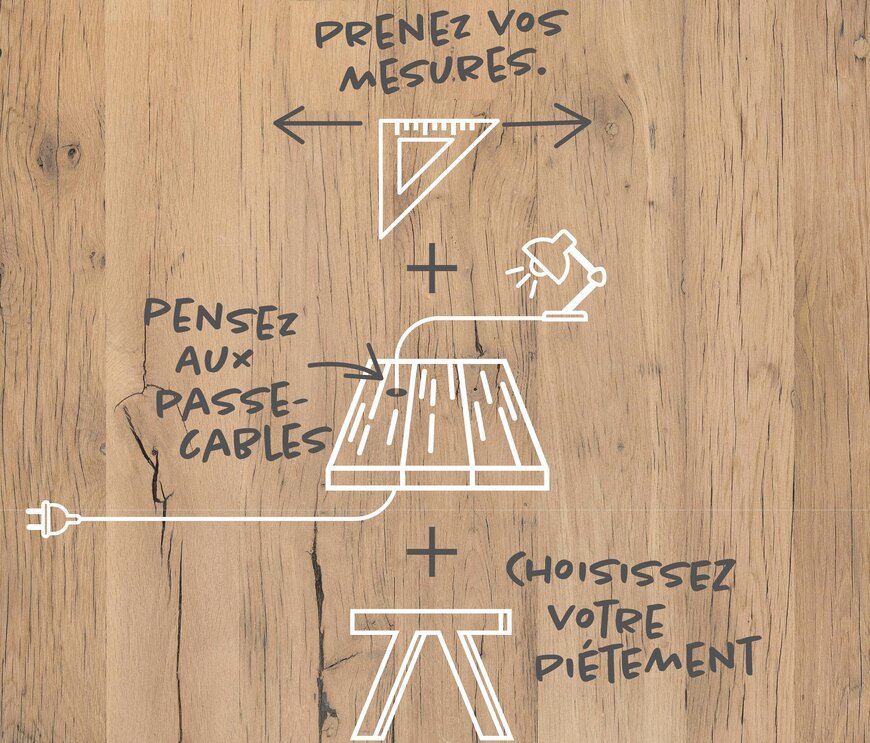 PRENEZ VOS
MESURES.
+
PENSEZ
AUX
PASSE-
CABLES
+
CHOISISSEZ
VOTRE
PIÉTEMENT